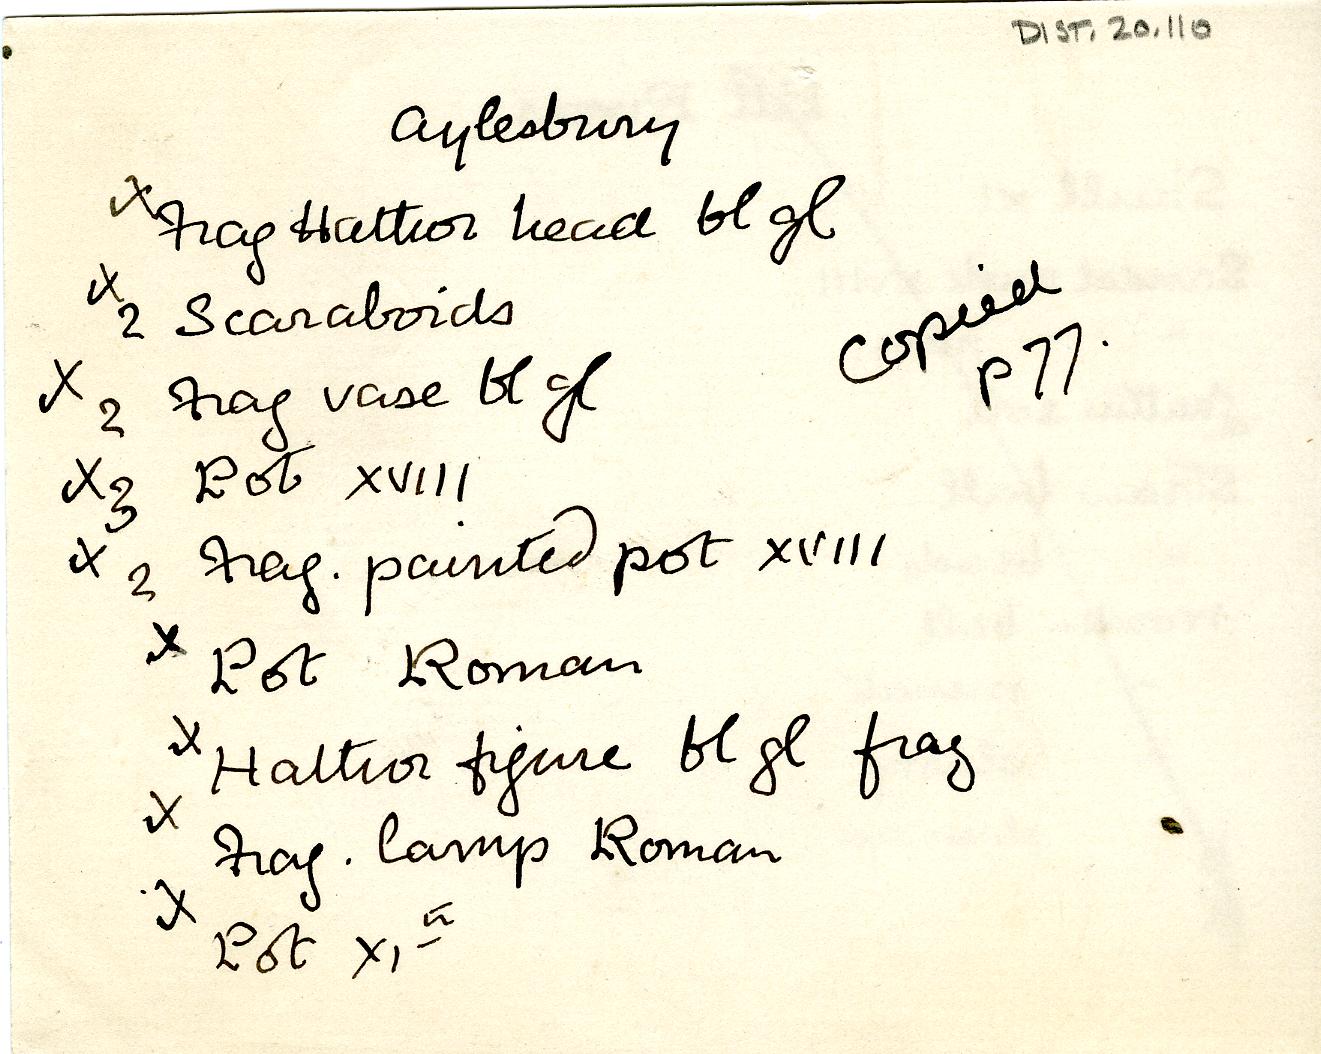 DIST. 20.110
Aylesbury
x Frag Hathor head bl gl
x 2 Scaraboids
x 2 Frag vase bl gl
Copied
p 77.
x 3 Pot XVIII
x 2 Frag. painted pot XVIII
x Pot Roman
x Hathor figure bl gl frag
x Frag. lamp Roman
x Pot XI th